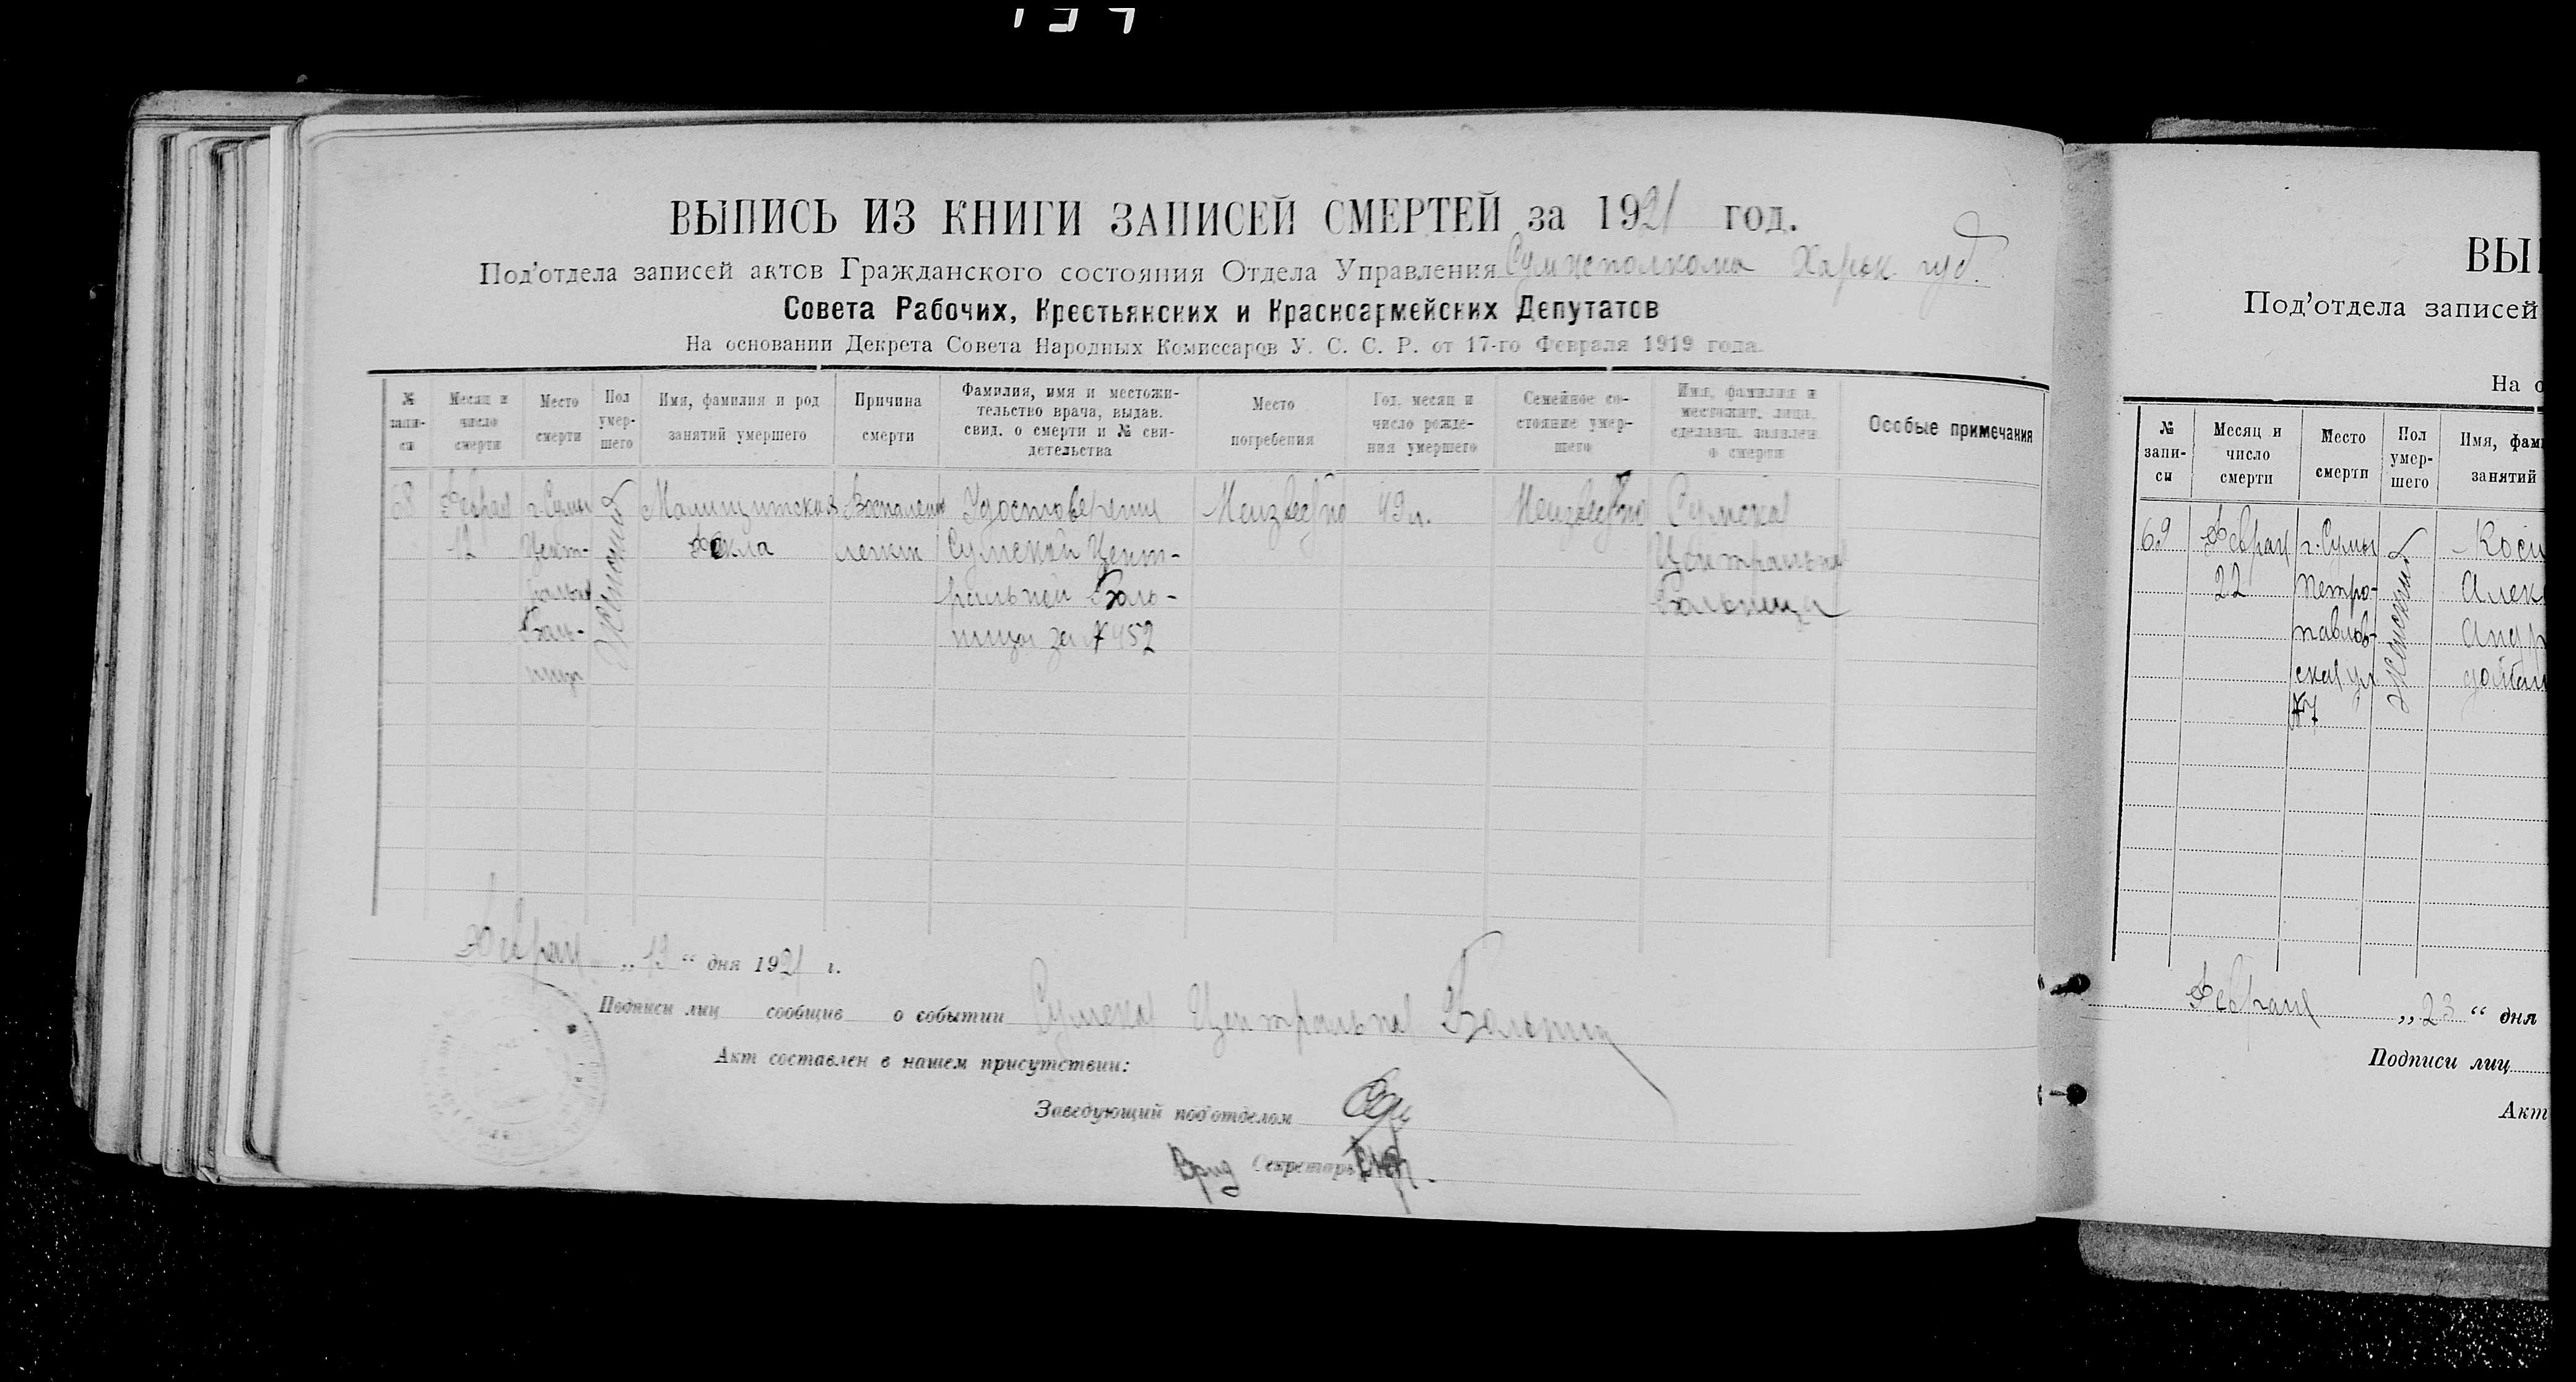 ВЫПИСЬ ИЗ КНИГИ ЗАПИСЕЙ СМЕРТЕЙ за 1921 год.
Под'отдела записей актов Гражданского состояния Отдела Управления Сумисполкома Харьк. губ.
Совета Рабочих, Крестьянских и Красноармейских Депутатов
На основании Декрета Совета Народных Комиссаров У. С. С. Р. от 17-го Февраля 1919 года.
№ запи-
си
Месяц и
число
смерти
Место
смерти
Пол
умер-
шего
Имя, фамилия и род
занятий умершего
Причина
смерти
Фамилия, имя и местожи-
тельство врача, выдав.
свид. о смерти и № сви-
детельства
Место
погребения
Год, месяц и
число рожде-
ния умершего
Семейное со-
стояние умер-
шего
Имя, фамилия и
местожит. лица,
сделавш. заявлен.
о смерти
Особые примечания
68
Феврал
12
г. Сумы
Цент-
ральн
Боль-
ница
Женский
Фекла
Воспаление
легких
Удостоверения
Сумской Цент-
ральной Боль-
ницы за № 452
Неизвестно
49 л.
Неизвестно
Сумская
Центральная
Больница
Февраля „ 12 “ дня 1921 г.
Подписи лиц сообщив о событии Сумская Центральная Больница
Акт составлен в нашем присутствии:
Заведующий под'отделом
Врид Секретарь
ВЫ
Под'отдела записей
На о
№
запи-
си
Месяц и
число
смерти
Место
смерти
Пол
умер-
шего
Имя, фам
занятий
69
Феврал
22
г. Сумы
Петро-
павлов-
ская ул
№7
Женский
Коси
Алек
Андр
Февраля „ 23 “ дня
Подписи лиц
Акт